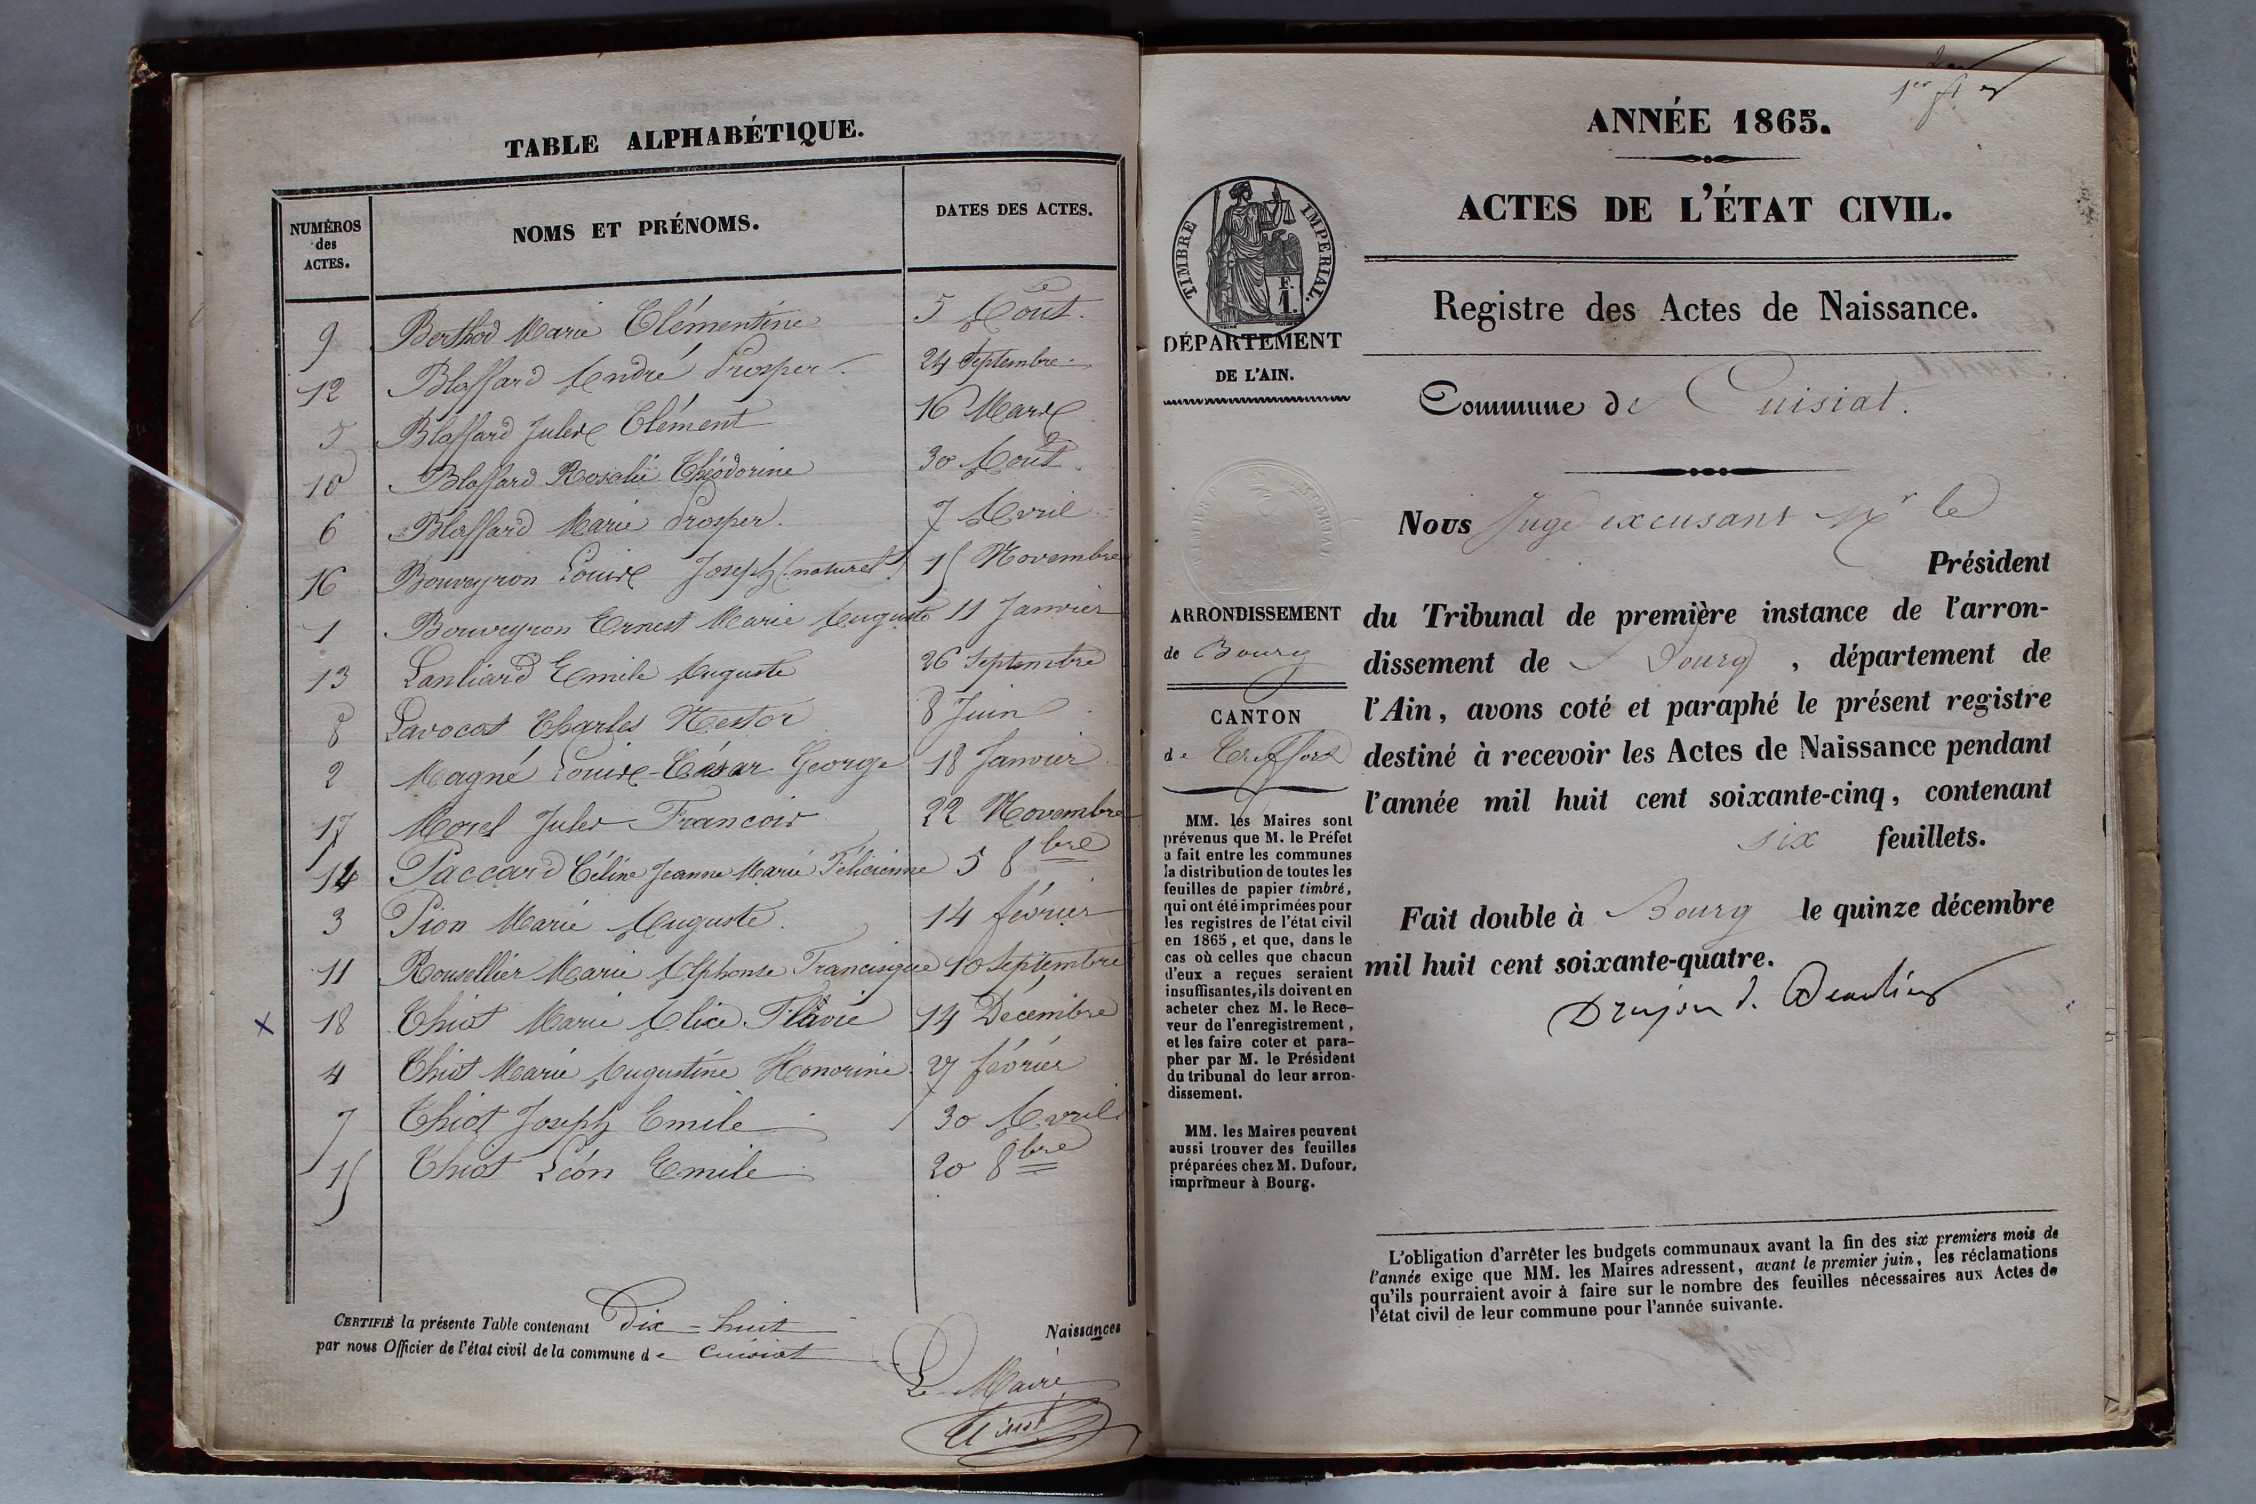 TABLE ALPHABÉTIQUE.
NUMÉROS des ACTES. NOMS ET PRÉNOMS. DATES DES ACTES.
9 Berthod Marie Clémentine 5 Août.
12 Blaffard André Prosper. 24 Septembre
5 Blaffard Jules Clément 16 Mars
10 Blaffard Rosalie Théodorine 30 Août.
6 Blaffard Marie Prosper. 7 Avril
16 Bouveyron Louis Joseph (naturel) 15 Novembre
1 Bouveyron Ernest Marie Auguste 11 Janvier
13 Lanliard Emile Auguste 26 Septembre
8 Lavocat Charles Nestor 8 Juin
2 Magné Louis-César George 18 Janvier
17 Morel Jules Francois 22 Novembre
14 Paccard Céline Jeanne Marie Félicienne 5 8bre
3 Pion Marie Auguste. 14 février
11 Rousellier Marie Alphonse Francisque 10 Septembre
x 18 Thiot Marie Alice Flavie 14 Décembre
4 Thiot Marie Augustine Honorine 27 février
7 Thiot Joseph Emile 30 Avril
15 Thiot Léon Emile 20 8bre
CERTIFIÉ la présente Table contenant Dix-huit Naissances
par nous Officier de l'état civil de la commune de Cuisiat
Le Maire
ANNÉE 1865.
ACTES DE L'ÉTAT CIVIL.
TIMBRE IMPERIAL.
F. 1.
Registre des Actes de Naissance.
DÉPARTEMENT
DE L'AIN.
Commune de Cuisiat.
Nous Juge excusant Mr le
Président
ARRONDISSEMENT
de Bourg
CANTON
de Treffort
du Tribunal de première instance de l'arron-
dissement de Bourg, département de
l'Ain, avons coté et paraphé le présent registre
destiné à recevoir les Actes de Naissance pendant
l'année mil huit cent soixante-cinq, contenant
six feuillets.
Fait double à Bourg le quinze décembre
mil huit cent soixante-quatre.
MM. les Maires sont
prévenus que M. le Préfet
a fait entre les communes
la distribution de toutes les
feuilles de papier timbré,
qui ont été imprimées pour
les registres de l'état civil
en 1865, et que, dans le
cas où celles que chacun
d'eux a reçues seraient
insuffisantes, ils doivent en
acheter chez M. le Rece-
veur de l'enregistrement,
et les faire coter et para-
pher par M. le Président
du tribunal de leur arron-
dissement.
MM. les Maires peuvent
aussi trouver des feuilles
préparées chez M. Dufour,
imprimeur à Bourg.
L'obligation d'arrêter les budgets communaux avant la fin des six premiers mois de
l'année exige que MM. les Maires adressent, avant le premier juin, les réclamations
qu'ils pourraient avoir à faire sur le nombre des feuilles nécessaires aux Actes de
l'état civil de leur commune pour l'année suivante.